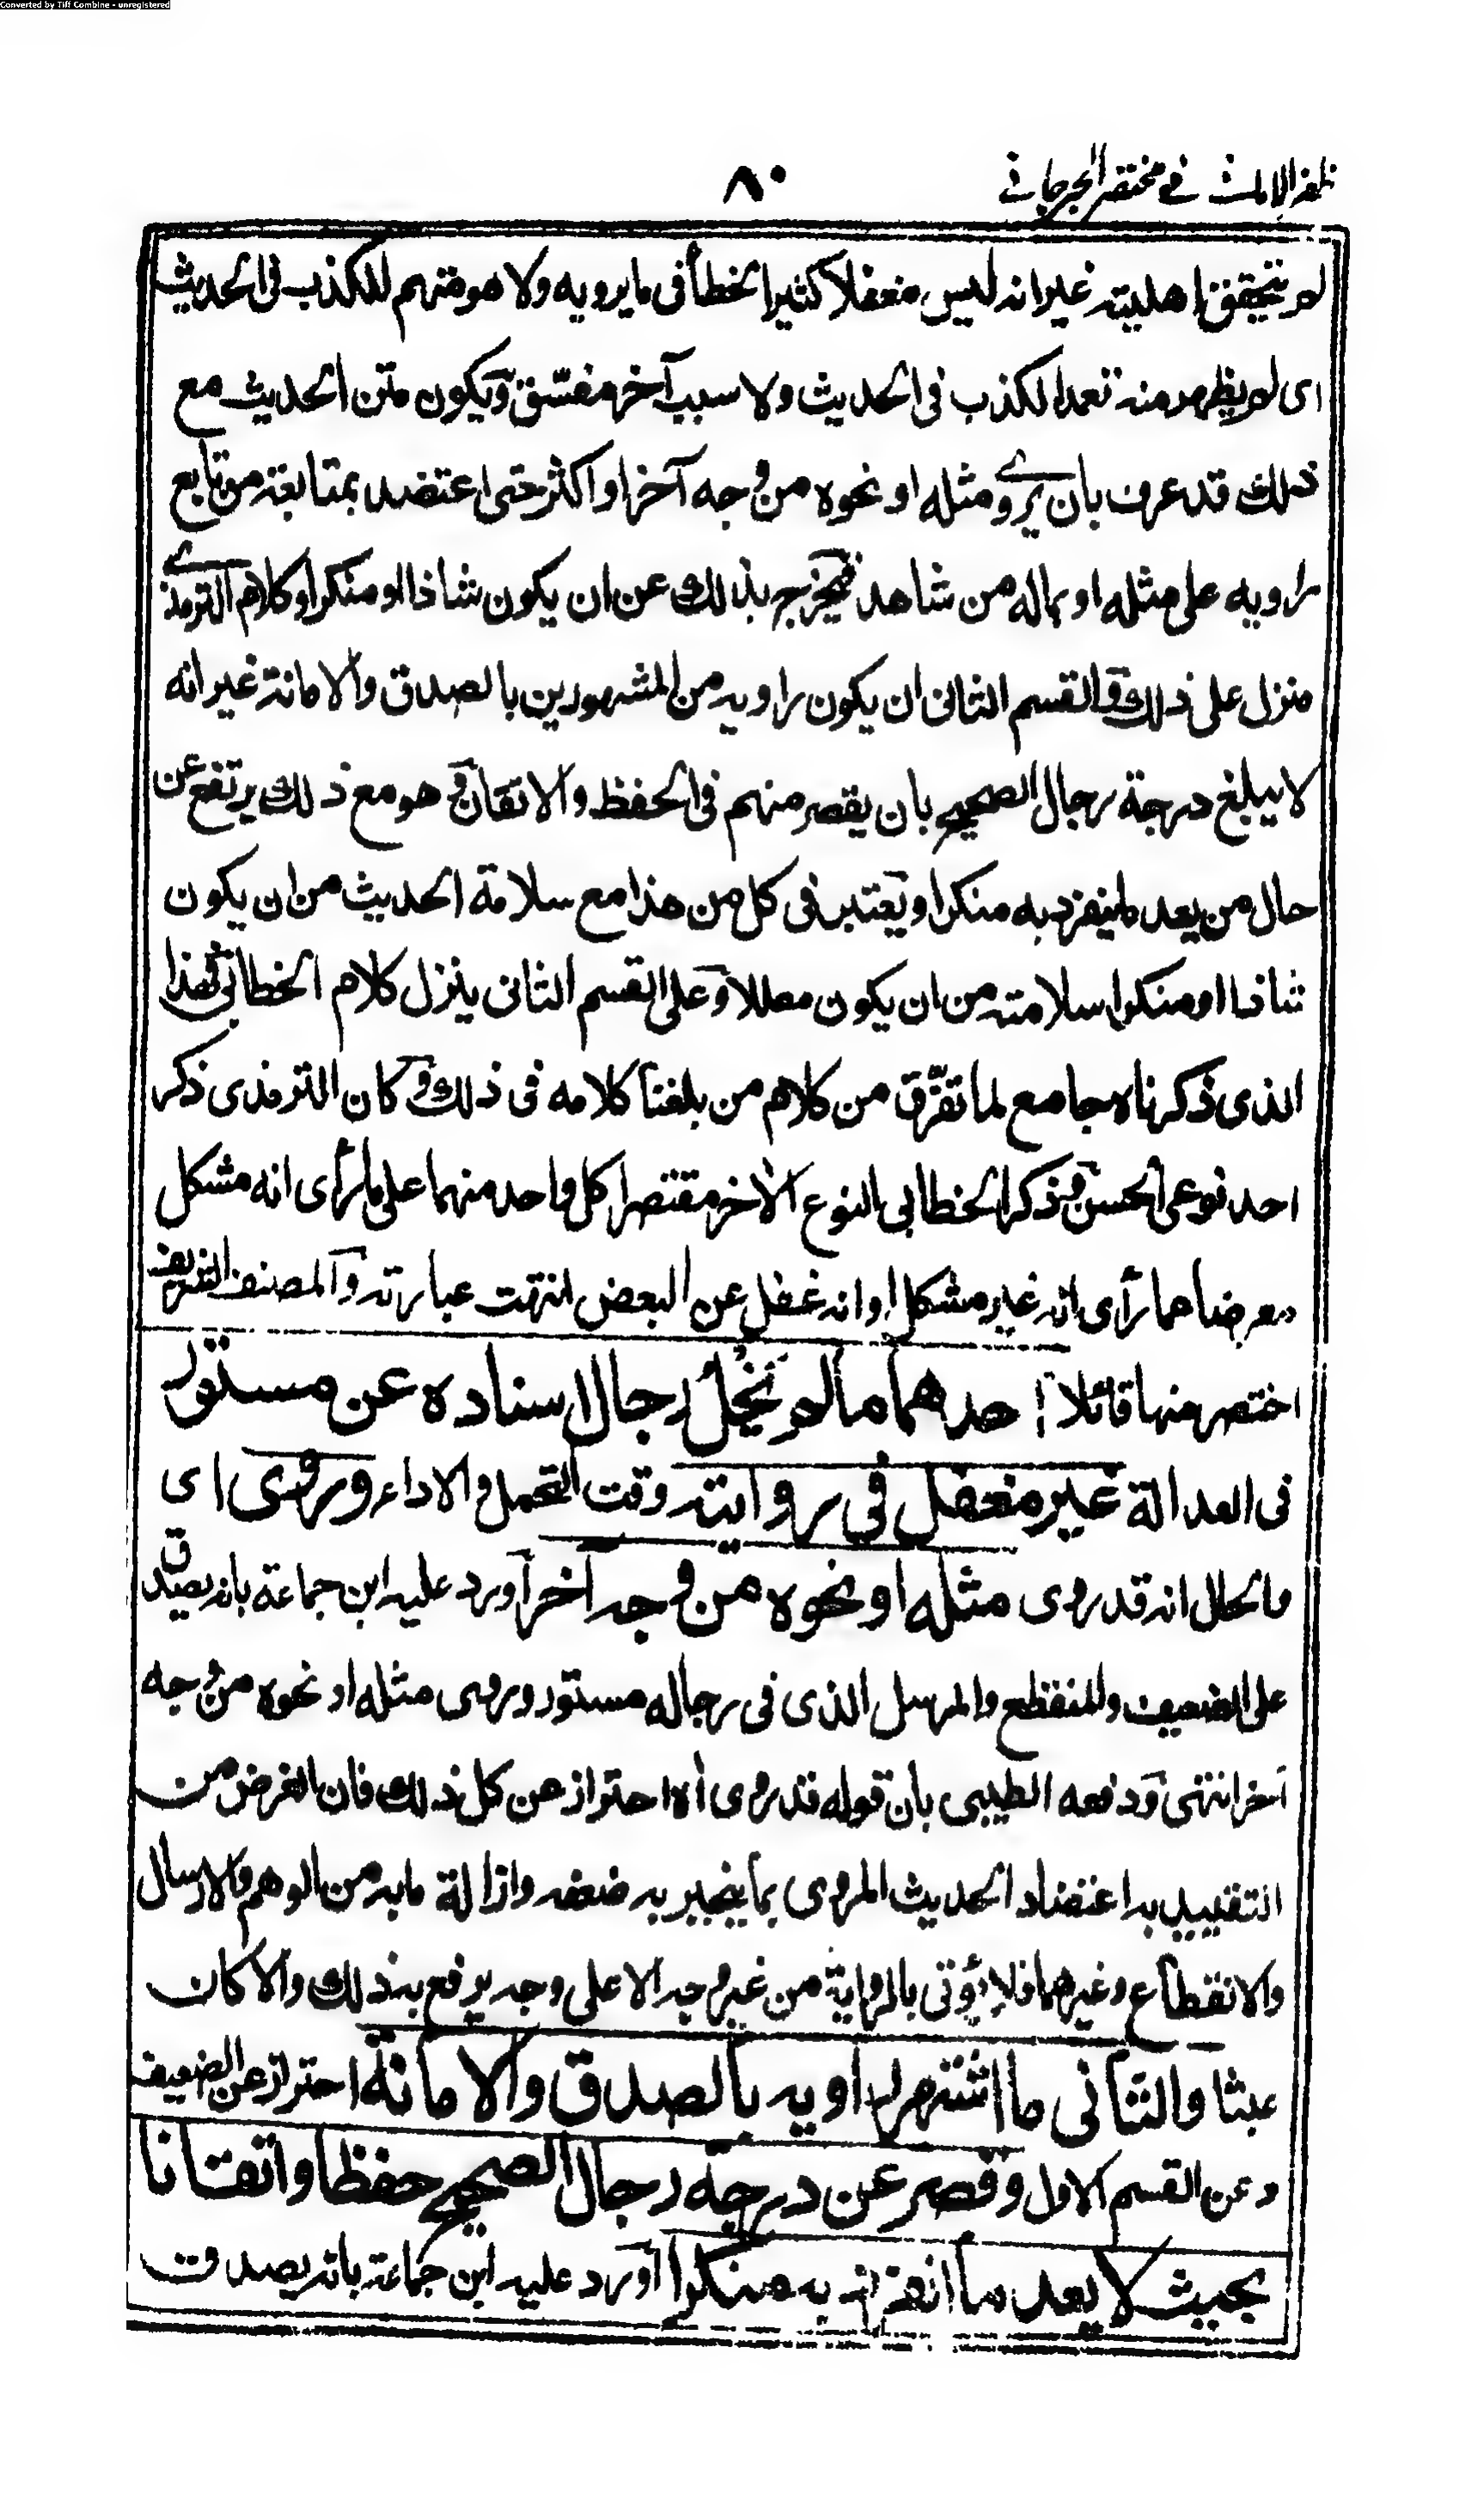 Converted by Tiff Combine - unregistered
ظفر الامانی فے مختصر الجرجانی
۸۰
لم يتحقق اهليته غير انه ليس مغفلا كثير الخطأ فى ما يرويه ولا هو متهم للكذب فى الحديث
اى لم يظهر منه تعمد الكذب فى الحديث ولا سبب آخر مفسّق ويكون متن الحديث مع
ذلك قد عرف بان يروے مثله او نحوه من وجه آخر او اكثر حتى اعتضد بمتابعة من تابع
راويه على مثله او بماله من شاهد فيخرج بذلك عن ان يكون شاذا او منكرا وكلام الترمذے
منزل على ذلك والقسم الثانى ان يكون راويه من المشهورين بالصدق والامانة غير انه
لا يبلغ درجة رجال الصحيح بان يقصر منهم فى الحفظ والاتقان وهو مع ذلك يرتفع عن
حال من يعد ما ينفرد به منكرا ويعتبر فى كل من هذا مع سلامة الحديث من ان يكون
شاذا او منكرا سلامته من ان يكون معللا وعلى القسم الثانى ينزل كلام الخطابى فهذا
الذى ذكرناه جامع لما تفرّق من كلام من بلغنا كلامه فى ذلك وكان الترمذى ذكر
احد نوعى الحسن وذكر الخطابى النوع الآخر مقتصرا كل واحد منهما على ما رأى انه مشكل
معرضا عما رأى انه غير مشكل او انه غفل عن البعض انتهت عبارته والمصنف الشريف
اختصر منها قائلا احدهما مالم يخل رجال اسناده عن مستور
فى العدالة غير مغفل فى روايته وقت التحمل والاداء وروى اى
والحال انه قد روى مثله او نحوه من وجه آخر اورد عليه ابن جماعة بانه يصدق
على الضعيف والمنقطع والمرسل الذى فى رجاله مستور وروى مثله او نحوه من وجه
آخر انتهى ودفعه الطيبى بان قوله قد روى اه احتراز عن كل ذلك فان الغرض من
التقييد به اعتضاد الحديث المروى بما ينجبر به ضعفه وازالة ما به من الوهم والارسال
والانقطاع وغيرهما فلا يؤتى بالرواية من غير وجه الا على وجه يرفع به ذلك والا كان
عبثا والثانى ما اشتهر راويه بالصدق والامانة احتراز عن الضعيف
وعن القسم الاول وقصر عن درجة رجال الصحيح حفظا واتقانا
بحيث لا يعد ما انفرد به منكرا اورد عليه ابن جماعة بانه يصدق